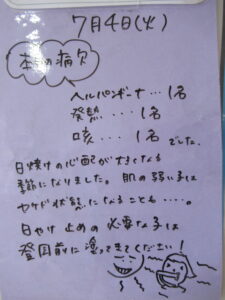 7月4日(火)
本日の病欠
ヘルパンギーナ…1名
発熱....1名
咳....1名
でした.
日焼けの心配が大きくなる
季節になりました。肌の弱い子は
ヤケド状態になることも・・・・。
日やけ止めの必要な子は
登園前に塗ってきてください!